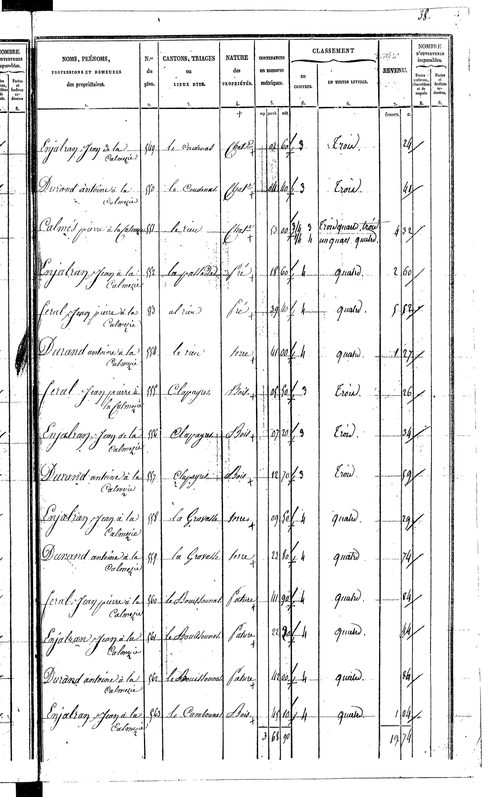 38.
NOMBRE D'OUVERTURES imposables.
NOMS, PRÉNOMS, PROFESSIONS ET DEMEURES des propriétaires.
N.os du plan.
CANTONS, TRIAGES ou LIEUX DITS.
NATURE des PROPRIÉTÉS.
CONTENANCES en mesures métriques.
CLASSEMENT
en CHIFFRES.
EN TOUTES LETTRES.
REVENU.
NOMBRE D'OUVERTURES imposables.
1. 2. 3. 4. 5. 6. 6. 7. 8. 8.
francs. c.
Enjalran Jean de la Calmezie 549 le Coudenat 04 60 3 Trois. 24
Durand antoine à la Calmezie 550 le Coudenat 3 Trois. 41
Calmés pierre à la Calmezie 551 le rieu 53 00 3/4 3 Trois quart, trois 4 32
1/4 4 un quart quatre
Enjalran Jean à la Calmezie 552 Pré 18 60 4 quatre. 2 60
feral Jean pierre à la Calmezie 553 al rieu Pré 39 4 quatre. 5 52
Durand antoine à la Calmezie 554 le rieu terre 41 00 4 quatre. 1 27
feral Jean pierre à la Calmezie 555 Clapayres Bois 05 50 3 Trois. 26
Enjalran Jean de la Calmezie 556 Clapayres Bois 07 20 3 Trois. 34
Durand antoine à la Calmezie 557 Clapayres Bois 12 70 3 Trois. 59
Enjalran Jean à la Calmezie 558 la Gravelle terre 09 50 4 quatre. 29
Durand antoine à la Calmezie 559 la Gravelle terre 23 80 4 quatre 74
feral Jean pierre à la Calmezie 560 le Bouissonnat Pature 41 90 4 quatre. 84
Enjalran Jean à la Calmezie 561 le Bouissonnat Pature 22 20 4 quatre. 44
Durand antoine à la Calmezie 562 le Bouissonnat Pature 42 00 4 quatre. 84
Enjalran Jean à la Calmezie 563 le Cambonnet Bois 45 10 4 quatre 1 04
3 68 90
19 74